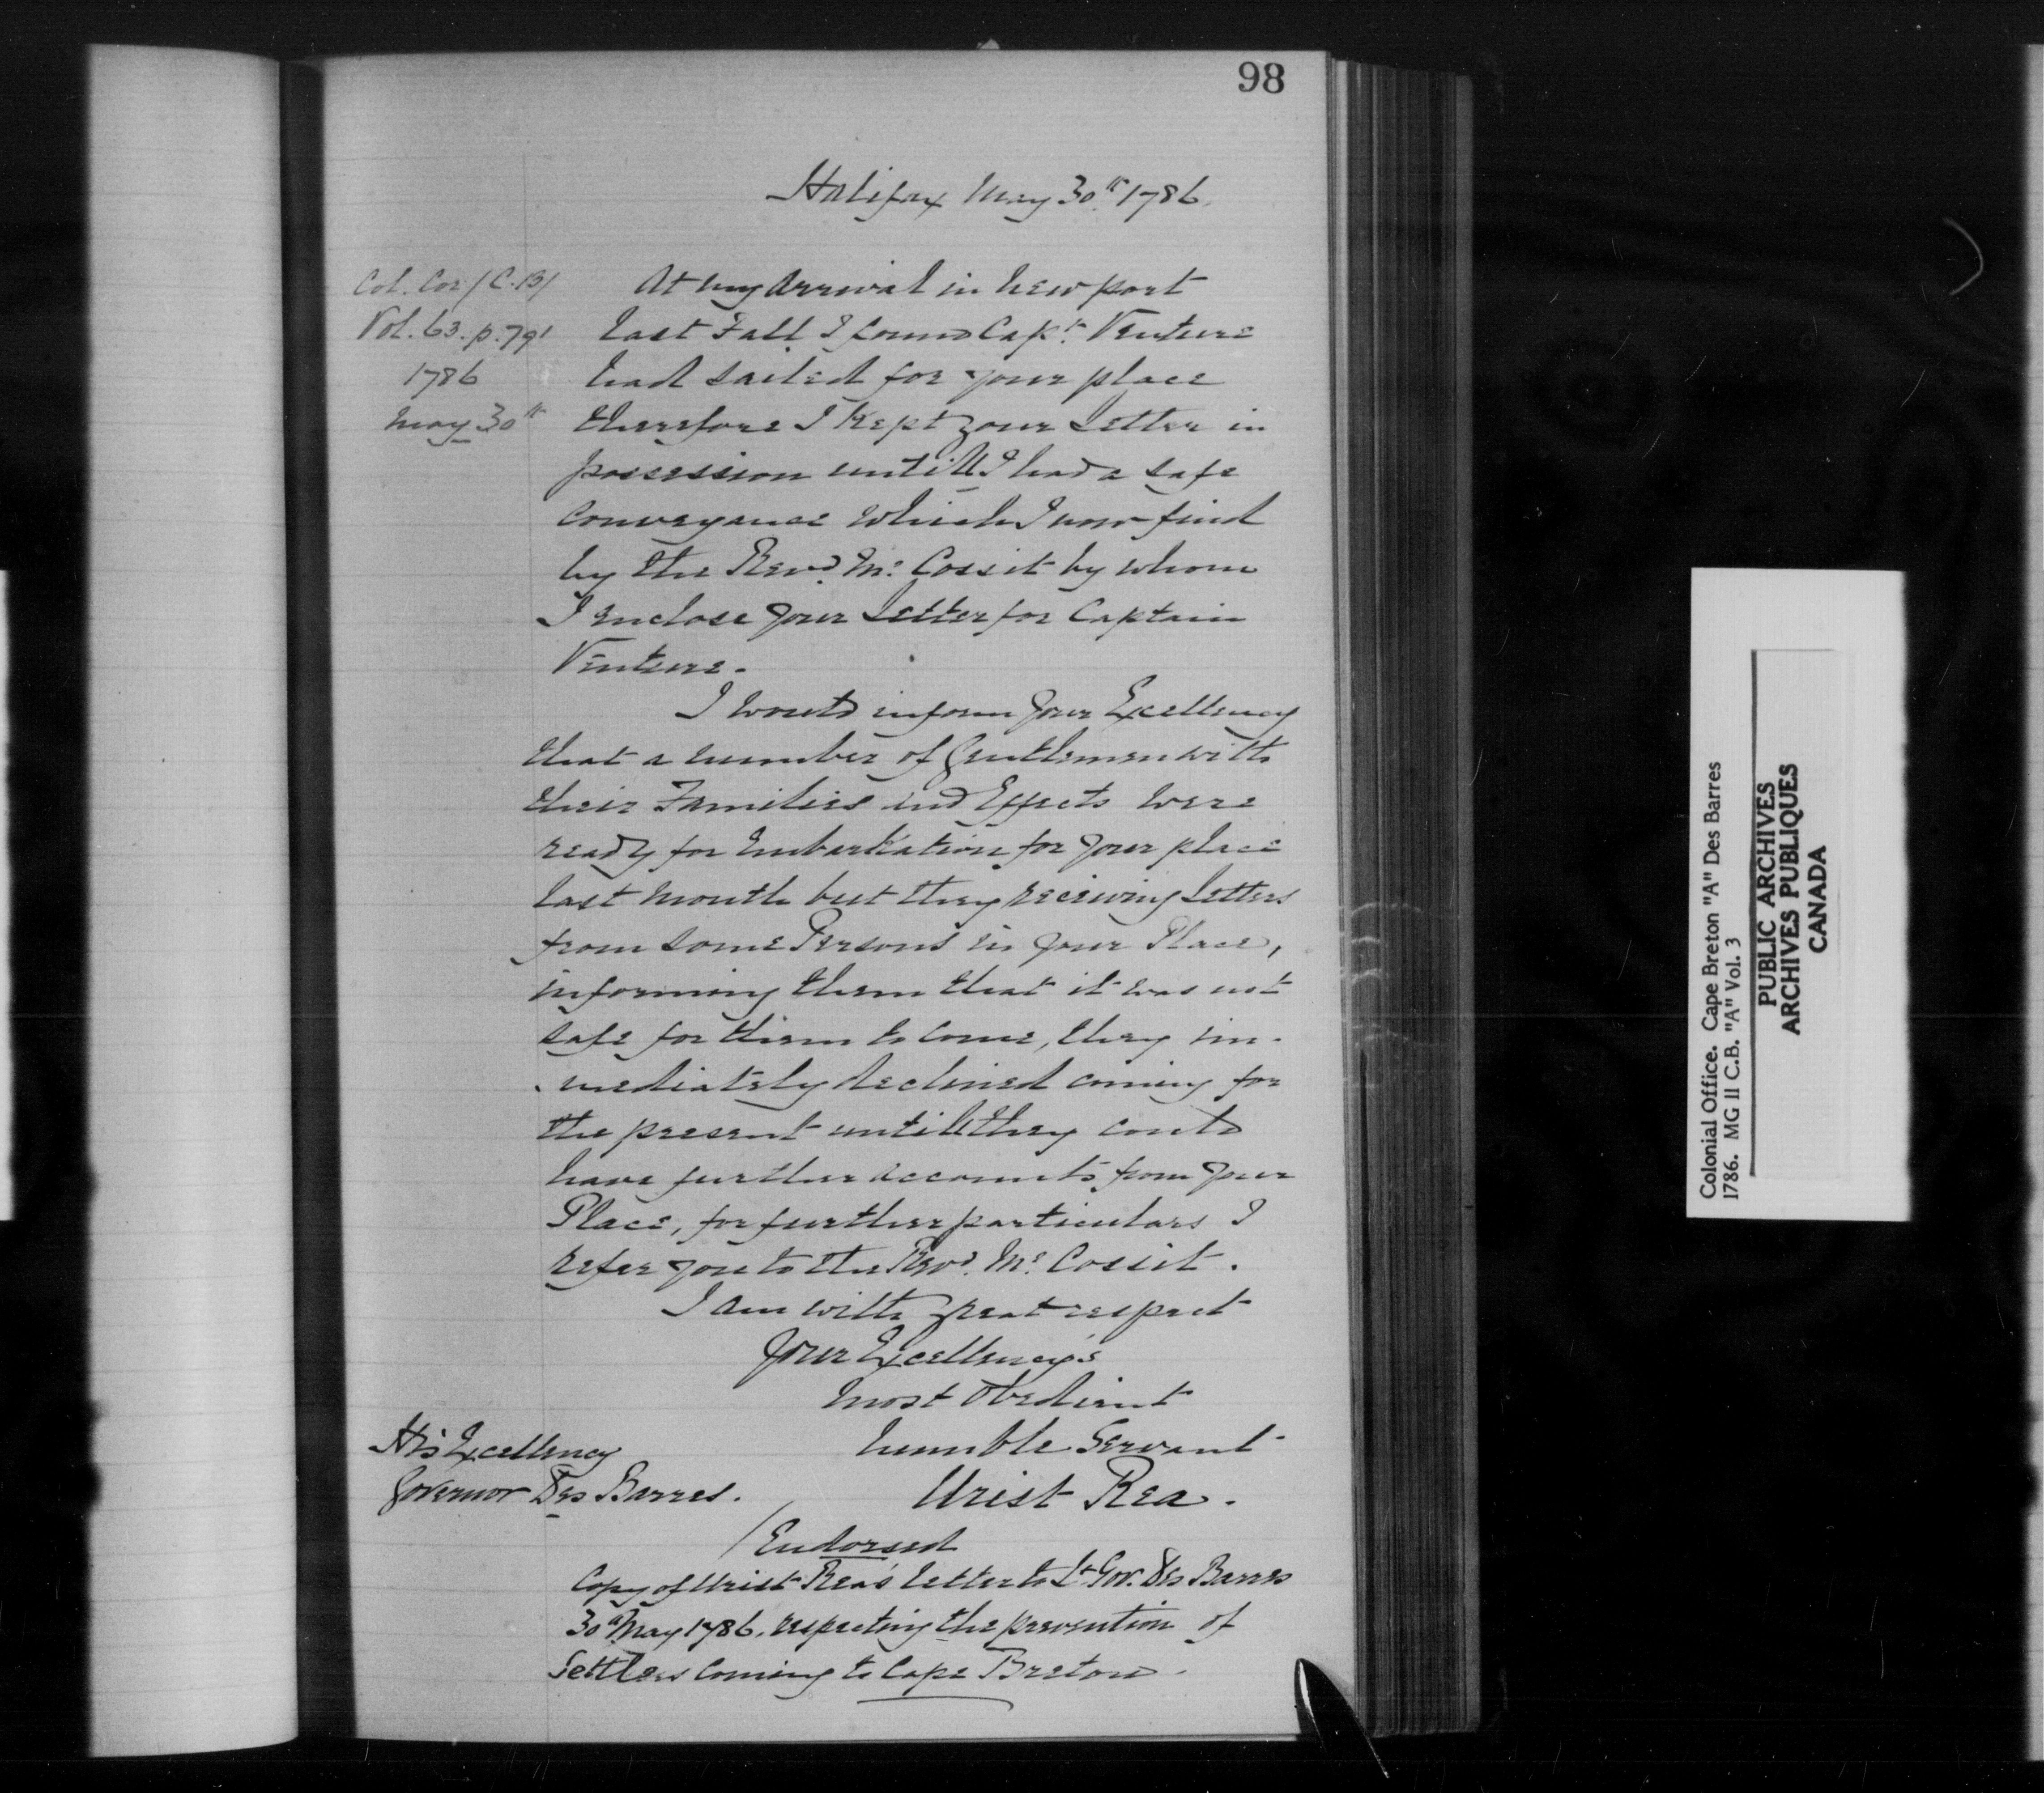 98
Halifax May 30th 1786.
Col. Cor /C.B/
Vol. 63. p. 791
1786
May 30th
At my Arrival in Newport
last Fall I found Capt. Venture
had sailed for your place
therefore I kept your Letter in
possession untill I had a safe
Conveyance which I now find
by the Revd. Mr. Cossit by whom
I enclose your Letter for Captain
Venture.
I would inform your Excellency
that a number of Gentlemen with
their Families and Effects were
ready for Embarkation for your place
last month but they receiving Letters
from some Persons in your Place,
informing them that it was not
safe for them to Come, they im-
-mediately declined coming for
the present untill they could
have further accounts from your
Place, for further particulars I
refer you to the Revd. Mr. Cossit.
I am with great respect
Your Excellency's
most Obedient
humble Servant
Urist Rea.
His Excellency
Governor Des Barres.
/Endorsed
Copy of Urist Rea's letter to Lt. Gov. Des Barres
30th May 1786, respecting the prevention of
Settlers Coming to Cape Breton.
Colonial Office. Cape Breton "A" Des Barres
1786. MG 11 C.B. "A" Vol. 3
PUBLIC ARCHIVES
ARCHIVES PUBLIQUES
CANADA